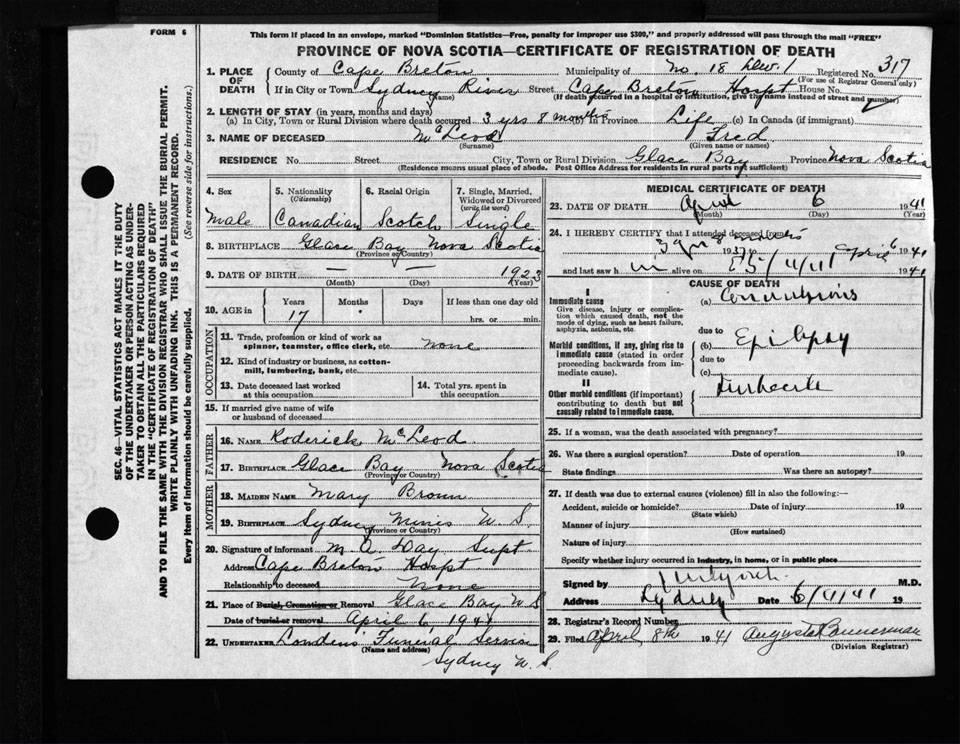 FORM 6
This form if placed in an envelope, marked "Dominion Statistics—Free, penalty for improper use $300," and properly addressed will pass through the mail "FREE"
PROVINCE OF NOVA SCOTIA—CERTIFICATE OF REGISTRATION OF DEATH
SEC. 46—VITAL STATISTICS ACT MAKES IT THE DUTY
OF THE UNDERTAKER OR PERSON ACTING AS UNDER-
TAKER TO OBTAIN ALL THE PARTICULARS REQUIRED
IN THE "CERTIFICATE OF REGISTRATION OF DEATH"
AND TO FILE THE SAME WITH THE DIVISION REGISTRAR WHO SHALL ISSUE THE BURIAL PERMIT.
WRITE PLAINLY WITH UNFADING INK. THIS IS A PERMANENT RECORD.
Every item of Information should be carefully supplied. (See reverse side for instructions.)
1. PLACE OF DEATH
County of Cape Breton Municipality of No. 18 Registered No. 317
(For use of Registrar General only)
If in City or Town Sydney River Street Cape Breton Hospt House No.
(Name) (If death occurred in a hospital or institution, give the name instead of street and number)
2. LENGTH OF STAY (in years, months and days)
(a) In City, Town or Rural Division where death occurred 3 yrs 8 months (b) In Province Life (c) In Canada (if immigrant)
3. NAME OF DECEASED McLeod Fred
(Surname) (Given name or names)
RESIDENCE No. Street City, Town or Rural Division Glace Bay Province Nova Scotia
(Residence means usual place of abode. Post Office Address for residents in rural parts not sufficient)
4. Sex
Male
5. Nationality
(Citizenship)
Canadian
6. Racial Origin
Scotch
7. Single, Married,
Widowed or Divorced
(write the word)
Single
8. BIRTHPLACE Glace Bay Nova Scotia
(Province or Country)
9. DATE OF BIRTH — — 1923
(Month) (Day) (Year)
10. AGE in Years Months Days If less than one day old
17 hrs. or min.
OCCUPATION
11. Trade, profession or kind of work as
spinner, teamster, office clerk, etc. None
12. Kind of industry or business, as cotton-
mill, lumbering, bank, etc.
13. Date deceased last worked
at this occupation
14. Total yrs. spent in
this occupation
15. If married give name of wife
or husband of deceased
FATHER
16. NAME Roderick McLeod
17. BIRTHPLACE Glace Bay Nova Scotia
(Province or Country)
MOTHER
18. MAIDEN NAME Mary Brown
19. BIRTHPLACE Sydney Mines N. S.
(Province or Country)
20. Signature of informant M A Day Supt
Address Cape Breton Hospt.
Relationship to deceased None
21. Place of Burial, Cremation or Removal Glace Bay N S
Date of burial or removal April 6 1941
22. UNDERTAKER Londen's Funeral Service
(Name and address)
Sydney N. S.
MEDICAL CERTIFICATE OF DEATH
23. DATE OF DEATH April 6 1941
(Month) (Day) (Year)
24. I HEREBY CERTIFY that I attended deceased from
3 yrs 8 months 1937 April 6 1941
and last saw h im alive on 1941
CAUSE OF DEATH
I
Immediate cause
Give disease, injury or complica-
tion which caused death, not the
mode of dying, such as heart failure,
asphyxia, asthenia, etc.
(a) Convulsions
due to
Morbid conditions, if any, giving rise to
immediate cause (stated in order
proceeding backwards from im-
mediate cause).
(b) Epilepsy
due to
(c)
II
Other morbid conditions (if important)
contributing to death but not
causally related to immediate cause.
Imbecile
25. If a woman, was the death associated with pregnancy?
26. Was there a surgical operation? Date of operation 19
State findings Was there an autopsy?
27. If death was due to external causes (violence) fill in also the following:—
Accident, suicide or homicide? Date of injury 19
(State which)
Manner of injury
(How sustained)
Nature of injury
Specify whether injury occurred in industry, in home, or in public place
Signed by M.D.
Address Sydney Date 6/4/41 19
28. Registrar's Record Number
29. Filed April 8th 1941 Augusta Bannerman
(Division Registrar)